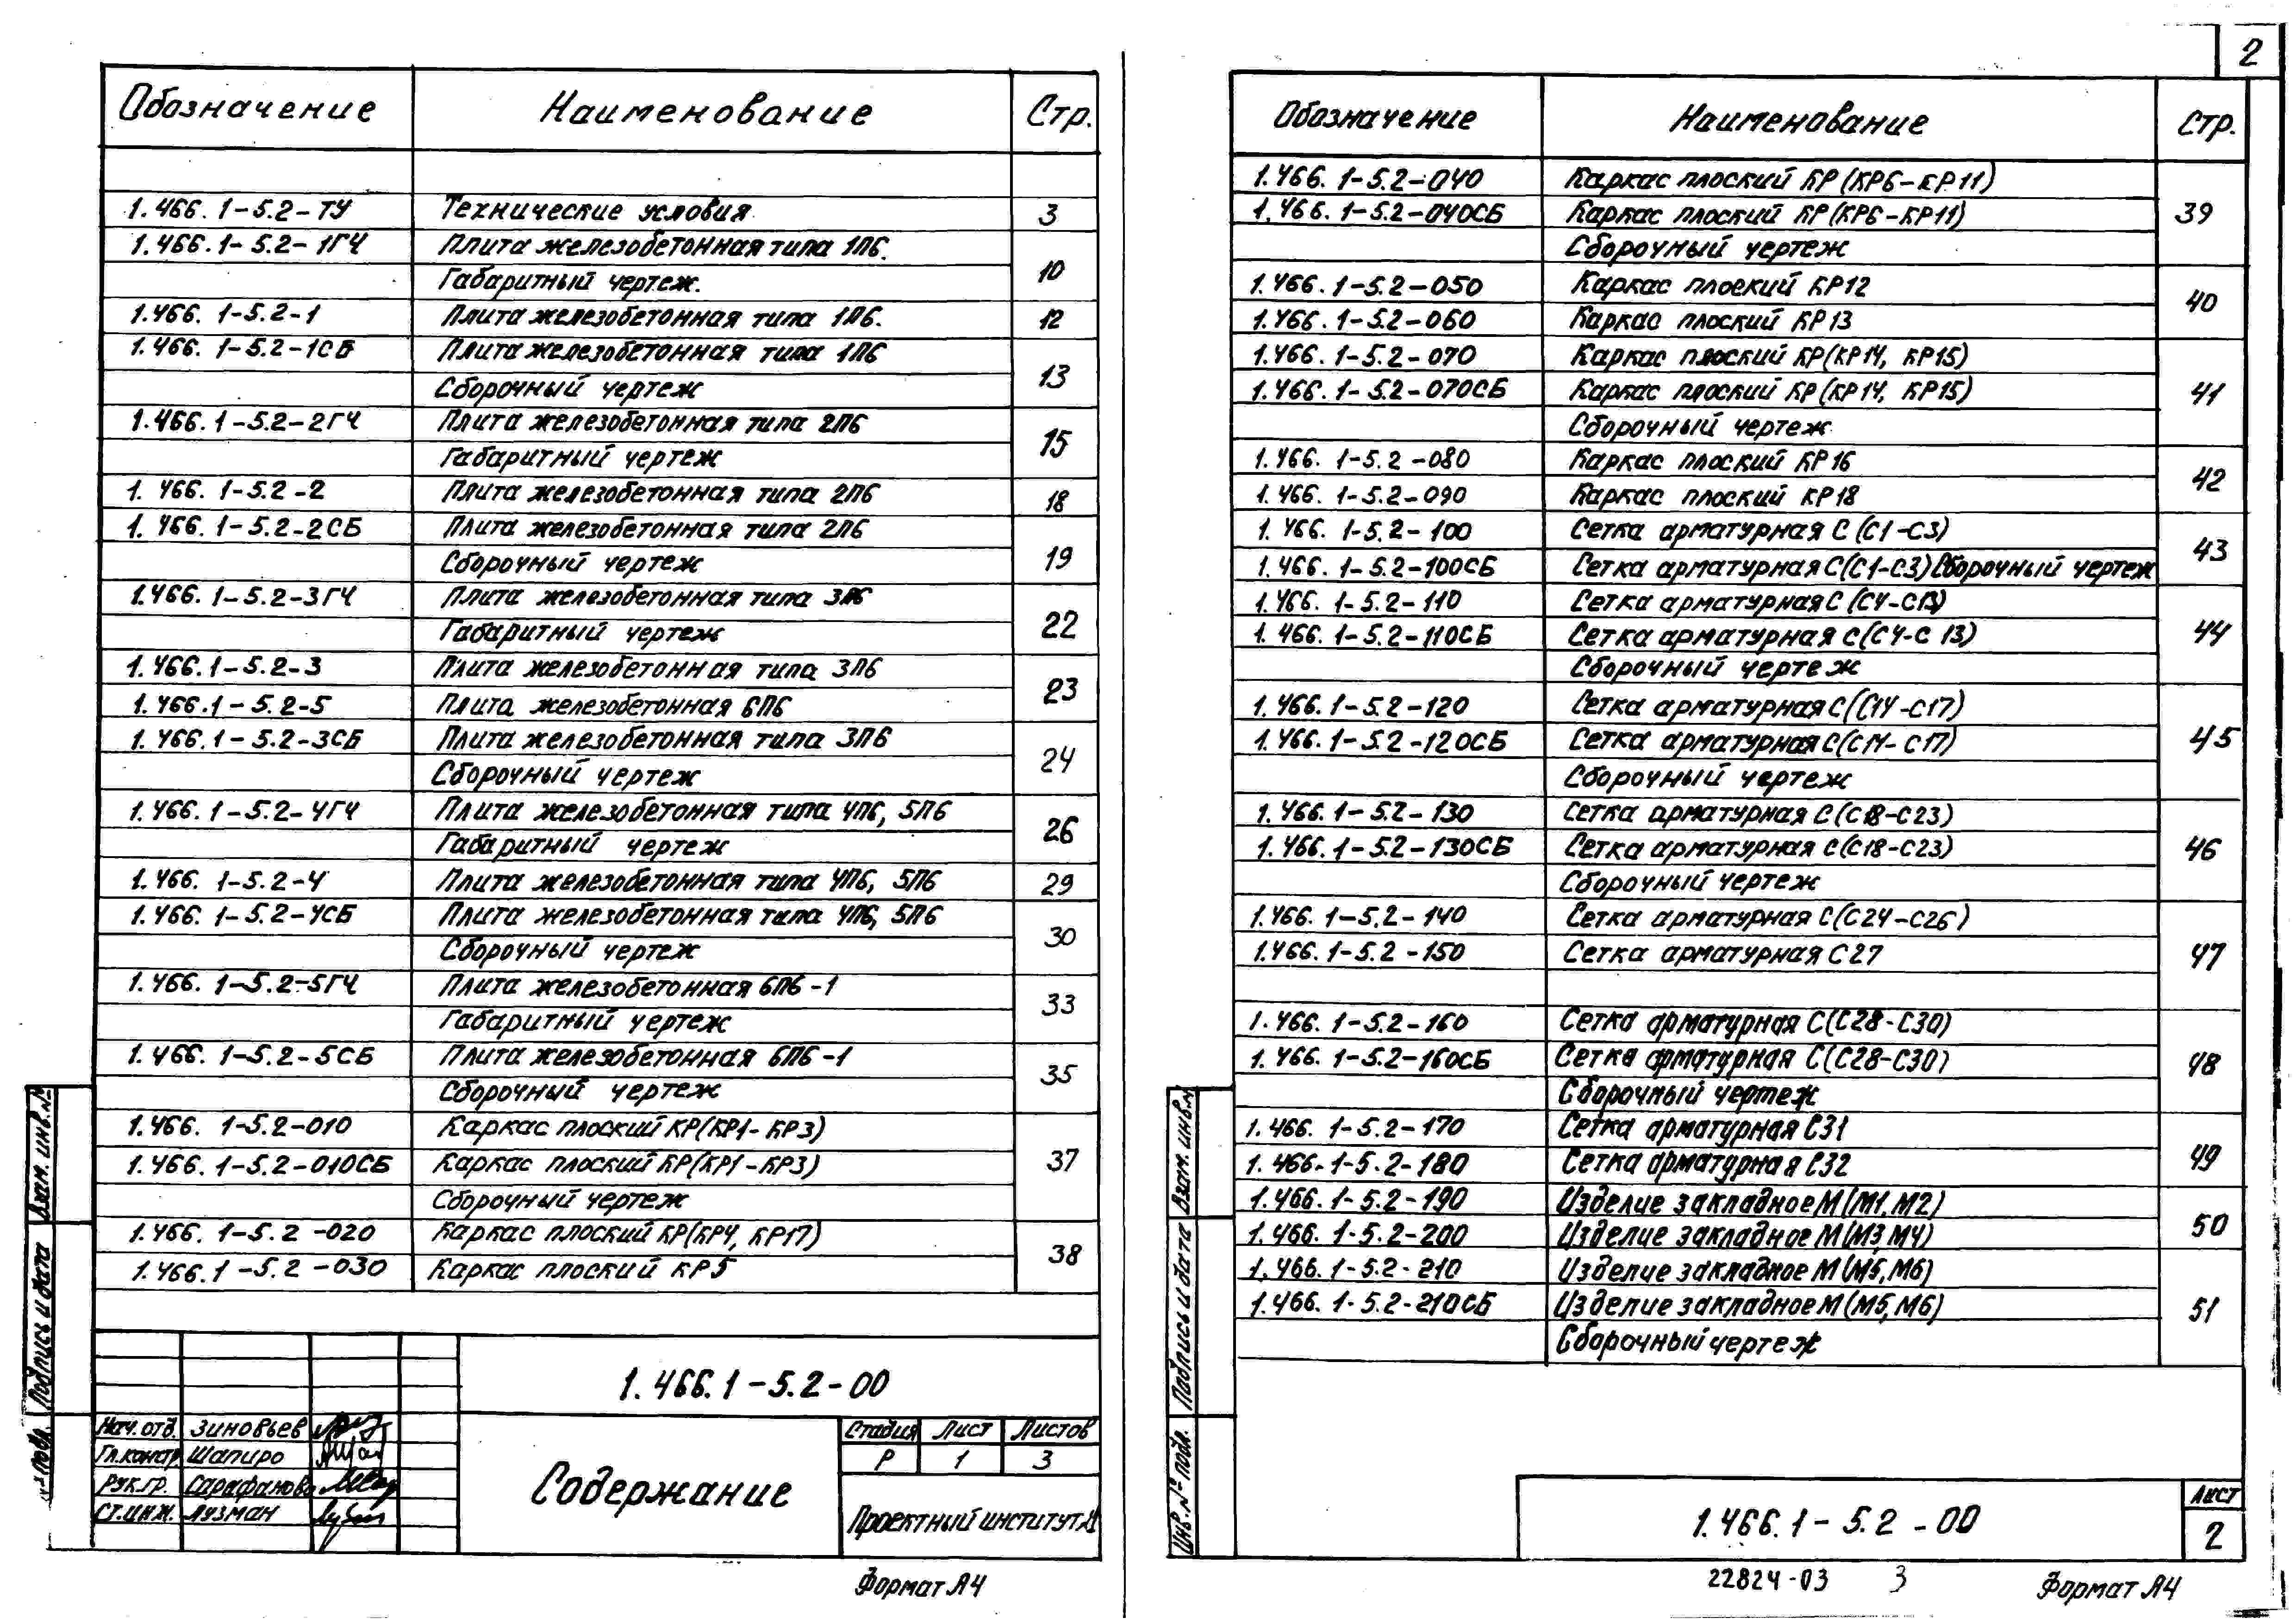 Обозначение Наименование Стр.
1.466.1-5.2-ТУ Технические условия 3
1.466.1-5.2-1ГЧ Плита железобетонная типа 1П6.
Габаритный чертеж. 10
1.466.1-5.2-1 Плита железобетонная типа 1П6. 12
1.466.1-5.2-1СБ Плита железобетонная типа 1П6
Сборочный чертеж 13
1.466.1-5.2-2ГЧ Плита железобетонная типа 2П6
Габаритный чертеж 15
1.466.1-5.2-2 Плита железобетонная типа 2П6 18
1.466.1-5.2-2СБ Плита железобетонная типа 2П6
Сборочный чертеж 19
1.466.1-5.2-3ГЧ Плита железобетонная типа 3П6
Габаритный чертеж 22
1.466.1-5.2-3 Плита железобетонная типа 3П6
23
1.466.1-5.2-5 Плита железобетонная 6П6
1.466.1-5.2-3СБ Плита железобетонная типа 3П6
Сборочный чертеж 24
1.466.1-5.2-4ГЧ Плита железобетонная типа 4П6, 5П6
Габаритный чертеж 26
1.466.1-5.2-4 Плита железобетонная типа 4П6, 5П6 29
1.466.1-5.2-4СБ Плита железобетонная типа 4П6, 5П6
Сборочный чертеж 30
1.466.1-5.2-5ГЧ Плита железобетонная 6П6-1
Габаритный чертеж 33
1.466.1-5.2-5СБ Плита железобетонная 6П6-1
Сборочный чертеж 35
1.466.1-5.2-010 Каркас плоский КР(КР1-КР3)
1.466.1-5.2-010СБ Каркас плоский КР(КР1-КР3) 37
Сборочный чертеж
1.466.1-5.2-020 Каркас плоский КР(КР4, КР17)
38
1.466.1-5.2-030 Каркас плоский КР5
1.466.1-5.2-00
Нач.отд. Зиновьев
Гл.констр. Шапиро
Рук.гр. Сарафанова
Ст.инж. Лузман
Содержание
Стадия Лист Листов
Р 1 3
Проектный институт №1
Взам. инв.№
Подпись и дата
№ подл.
Формат А4
2
Обозначение Наименование Стр.
1.466.1-5.2-040 Каркас плоский КР(КР6-КР11)
1.466.1-5.2-040СБ Каркас плоский КР(КР6-КР11) 39
Сборочный чертеж
1.466.1-5.2-050 Каркас плоский КР12
40
1.466.1-5.2-060 Каркас плоский КР13
1.466.1-5.2-070 Каркас плоский КР(КР14, КР15)
1.466.1-5.2-070СБ Каркас плоский КР(КР14, КР15) 41
Сборочный чертеж
1.466.1-5.2-080 Каркас плоский КР16
42
1.466.1-5.2-090 Каркас плоский КР18
1.466.1-5.2-100 Сетка арматурная С(С1-С3)
43
1.466.1-5.2-100СБ Сетка арматурная С(С1-С3) Сборочный чертеж
1.466.1-5.2-110 Сетка арматурная С(С4-С13)
1.466.1-5.2-110СБ Сетка арматурная С(С4-С13) 44
Сборочный чертеж
1.466.1-5.2-120 Сетка арматурная С(С14-С17)
1.466.1-5.2-120СБ Сетка арматурная С(С14-С17) 45
Сборочный чертеж
1.466.1-5.2-130 Сетка арматурная С(С18-С23)
1.466.1-5.2-130СБ Сетка арматурная С(С18-С23) 46
Сборочный чертеж
1.466.1-5.2-140 Сетка арматурная С(С24-С26)
1.466.1-5.2-150 Сетка арматурная С27 47
1.466.1-5.2-160 Сетка арматурная С(С28-С30)
1.466.1-5.2-160СБ Сетка арматурная С(С28-С30) 48
Сборочный чертеж
1.466.1-5.2-170 Сетка арматурная С31
49
1.466.1-5.2-180 Сетка арматурная С32
1.466.1-5.2-190 Изделие закладное М(М1, М2)
50
1.466.1-5.2-200 Изделие закладное М(М3, М4)
1.466.1-5.2-210 Изделие закладное М(М5, М6)
1.466.1-5.2-210СБ Изделие закладное М(М5, М6) 51
Сборочный чертеж
Взам. инв.№
Подпись и дата
Инв.№ подл.
1.466.1-5.2-00
Лист
2
22824-03 3
Формат А4